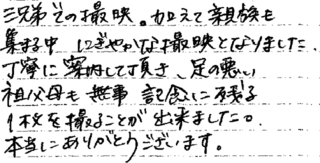 三兄弟での撮映。加えて親族も
集まる中 にぎやかな撮映となりました。
丁寧に案内して頂き、足の悪い
祖父母も無事 記念に残る
1枚を撮ることが出来ました。
本当にありがとうございます。